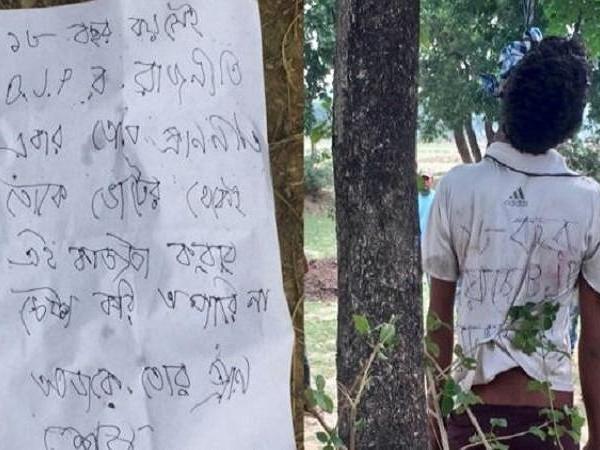 ১৮ বছর বয়সেই
B.J.P র রাজনীতি
এবার তোর প্রাননীতি
তোকে ভোটের থেকেই
এই কাজটা করবার
চেষ্টা করি পারি না
আজকে তোর প্রান
শেষ
adidas
১৮ বছর